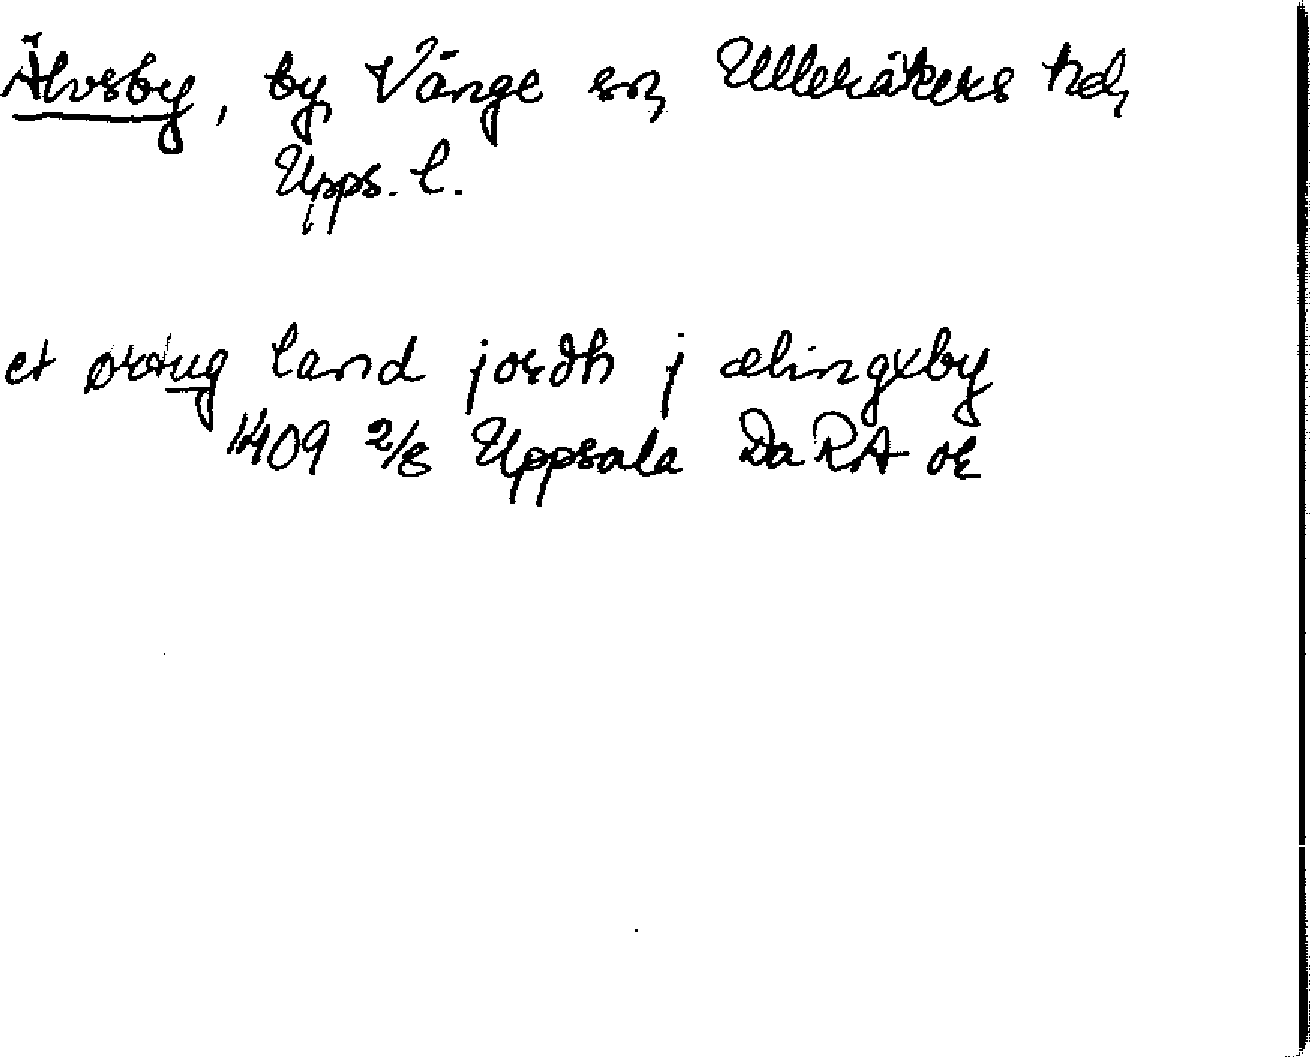 Älvsby, by, Vänge sn, Ulleråkers hd,
Upps. l.
et ørtug land jordh j ælingxby
1409 2/8 Uppsala DaRA or